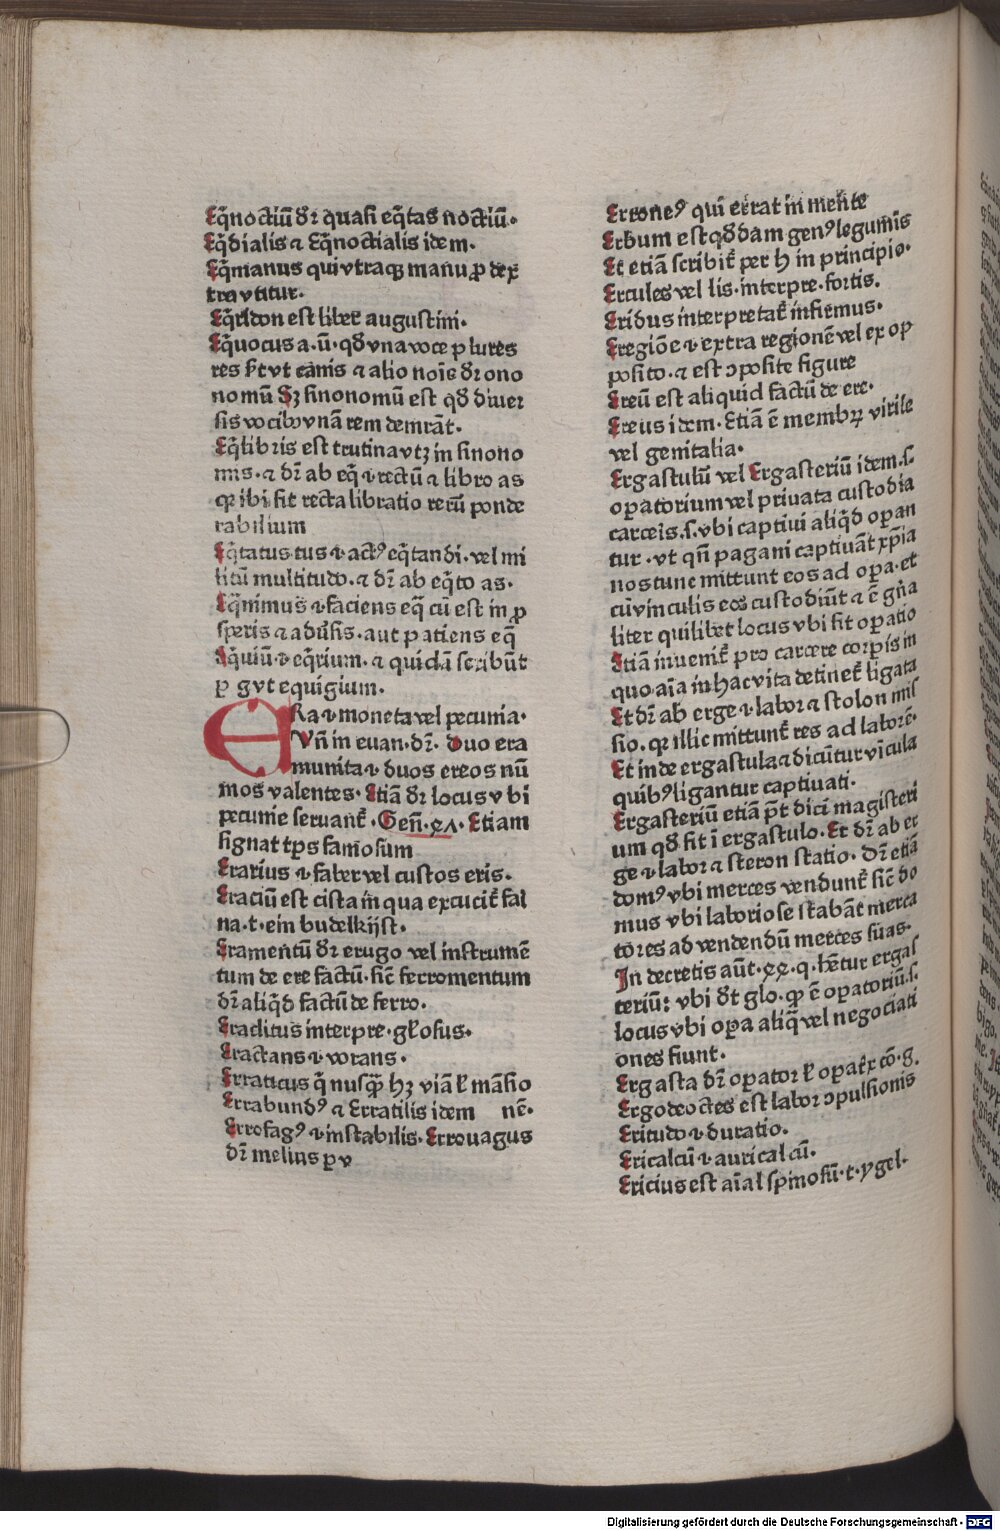 Eq̃noctiũ dr̃ quasi eq̃tas noctiũ.
Eq̃dialis ⁊ Eq̃noctialis idem.
Eq̃manus qui vtraqꝫ manu ꝓ dex
tra vtitur.
Eq̃rldon est liber augustini.
Eq̃uocus a. ũ. qd̃ vna voce plures
res st̾ vt canis ⁊ alio noĩe dr̃ ono
nomũ Sꝫ sinonomũ est qd̃ diuer
sis vocibꝰ vnã rem demrãt.
Eq̃libris est trutina vtꝫ in sinono
mis. ⁊ dr̃ ab eq̃ .i. rectũ ⁊ libro as
qꝛ ibi fit recta libratio rerũ ponde
rabilium
Eq̃tatus tus .i. actꝰ eq̃tandi. vel mi
litũ multitudo. ⁊ dr̃ ab eq̃to as.
Eq̃nimus .i. faciens eq̃ cũ est in ꝓ
speris ⁊ adũsis. aut patiens eq̃
Eq̃uiũ .i. eq̃rium. ⁊ quidã scribũt
ꝑ g vt equigium.
ERa .i. moneta vel pecunia.
Vñ in euan. dr̃. duo era
munita .i. duos ereos nũ
mos valentes. Etiã dr̃ locus vbi
pecunie seruant̃. Geñ. ꝯʌ. Etiam
signat tp̃s famosum
Erarius .i. faber vel custos eris.
Eraciũ est cista in qua excucit̃ fal
na. t. ein budelkijst.
Eramentũ dr̃ erugo vel instrumẽ
tum de ere factũ. sic̃ ferromentum
dr̃ aliq̃d factũ de ferro.
Eraditus interpre. gl̃osus.
Eractans .i. vorans.
Erraticus q̃ nusq̃ꝫ hꝫ viã l̃ mãsio
Errabundꝰ ⁊ Erratilis idem nẽ.
Errofagꝰ .i. instabilis. Errouagus
dr̃ melius ꝑ v
Erroneꝰ qui errat in mente
Erbum est qd̃dam genꝰ leguminis
Et etiã scribit̃ per h in principio.
Ercules vel lis. interpre. fortis.
Eridus interpretat̃ infiemus.
Eregiõe .i. extra regionẽ vel ex op
posito. ⁊ est ꝯposite figure
Ereũ est aliquid factũ de ere.
Ereus idem. Etiã ẽ membꝝ virile
vel genitalia.
Ergastulũ vel Ergasteriũ idem. s.
oꝑatorium vel priuata custodia
carceris. s. vbi captiui aliq̃d oꝑan
tur. vt qñ pagani captiuãt xp̃ia
nos tunc mittunt eos ad oꝑa. et
cũ vinculis eos custodiũt ⁊ ẽ gña
liter quilibet locus vbi fit oꝑatio
Etiã inuenit̃ pro carcere corꝑis in
quo aĩa in hac vita detinet̃ ligata
Et dr̃ ab erge .i. labor ⁊ stolon mis
sio. qꝛ illic mittunt̃ res ad laborẽ.
Et inde ergastula ⁊ dicũtur vĩcula
quibꝰ ligantur captiuati.
Ergasteriũ etiam p̃t dici magisteri
um qd̃ fit ĩ ergastulo. Et dr̃ ab er
ge .i. labor ⁊ steron statio. dr̃ etiã
domꝰ vbi merces vendunt̃ sic̃ do
mus vbi laboriose stabãt merca
tores ad vendendũ merces suas.
In decretis aũt. ꝯꝯ. q. hẽtur ergas
teriũ: vbi dt̃ glo. qp̃ ẽ oꝑatoriũ. s.
locus vbi oꝑa aliq̃ vel negociati
ones fiunt.
Ergasta dr̃ oꝑator l̃ oꝑatꝝ cõ. g.
Ergodoctes est labor ꝯpulsionis
Eritudo .i. duratio.
Ericalcũ .i. auricalcũ.
Ericius est aĩal spinosũ. t. ygel.
Digitalisierung gefördert durch die Deutsche Forschungsgemeinschaft - DFG